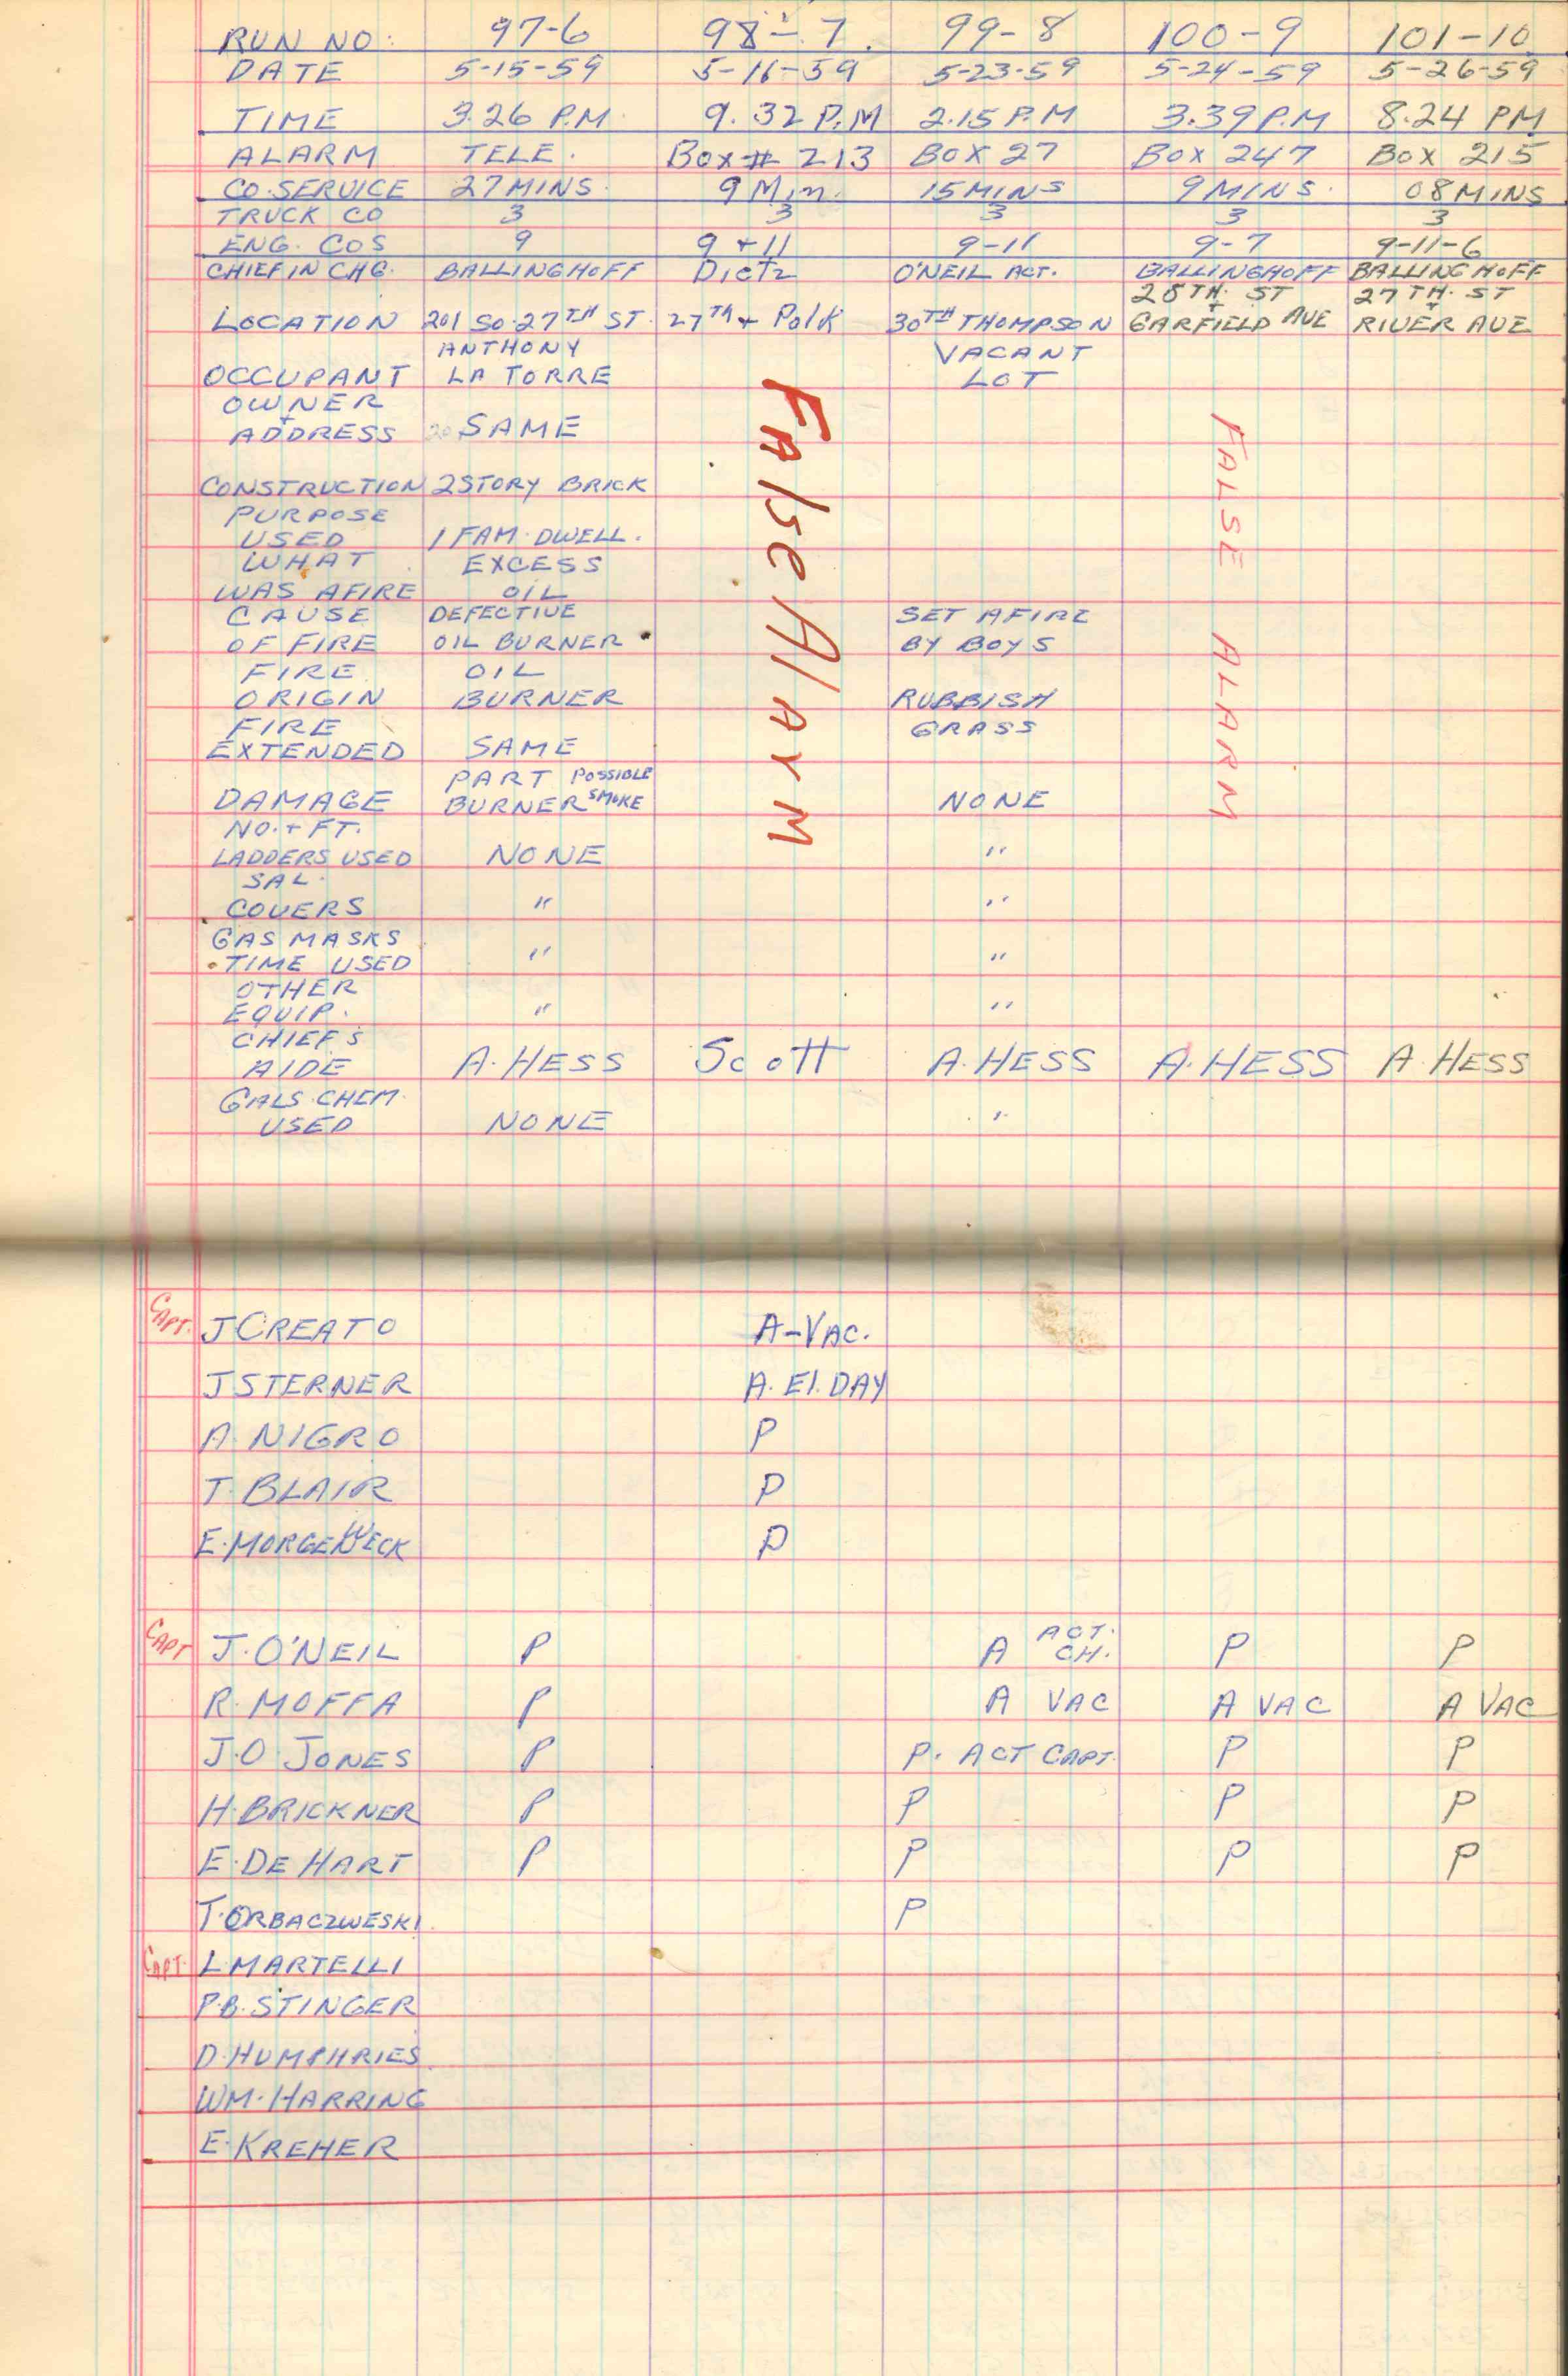 RUN NO. 97-6 98-7. 99-8 100-9 101-10
DATE 5-15-59 5-16-59 5-23-59 5-24-59 5-26-59
TIME 3.26 P.M. 9.32 P.M 2.15 P.M 3.39 P.M 8.24 PM
ALARM TELE. Box # 213 BOX 27 BOX 247 BOX 215
CO. SERVICE 27 MINS. 9 Min. 15 MINS 9 MINS. 08 MINS
TRUCK CO 3 3 3 3 3
ENG. COS 9 9 + 11 9-11 9-7 9-11-6
CHIEF IN CHG. BALLINGHOFF Dietz O'NEIL ACT. BALLINGHOFF BALLINGHOFF
28TH. ST 27TH. ST
+ +
LOCATION 201 SO. 27TH ST. 27TH + Polk 30TH THOMPSON GARFIELD AVE RIVER AVE
ANTHONY VACANT
OCCUPANT LA TORRE LOT
OWNER
+
ADDRESS SAME
CONSTRUCTION 2 STORY BRICK
PURPOSE
USED 1 FAM. DWELL.
WHAT EXCESS
WAS AFIRE OIL
CAUSE DEFECTIVE SET AFIRE
OF FIRE OIL BURNER BY BOYS
FIRE OIL
ORIGIN BURNER RUBBISH
FIRE GRASS
EXTENDED SAME
PART POSSIBLE
DAMAGE BURNER SMOKE NONE
NO. + FT.
LADDERS USED NONE "
SAL.
COVERS " "
GAS MASKS
TIME USED " "
OTHER
EQUIP. " "
CHIEF'S
AIDE A. HESS Scott A. HESS A. HESS A HESS
GALS. CHEM.
USED NONE "
False Alarm
FALSE ALARM
CAPT. J CREATO A-VAC.
J STERNER A. El. DAY
A. NIGRO P
T. BLAIR P
E. MORGENWECK P
CAPT J. O'NEIL P A ACT. CH. P P
R. MOFFA P A VAC A VAC A VAC
J. O JONES P P. ACT CAPT. P P
H. BRICKNER P P P P
E. DE HART P P P P
T. ORBACZWESKI. P
CAPT. L. MARTELLI
P. B. STINGER
D. HUMPHRIES.
WM. HARRING
E. KREHER